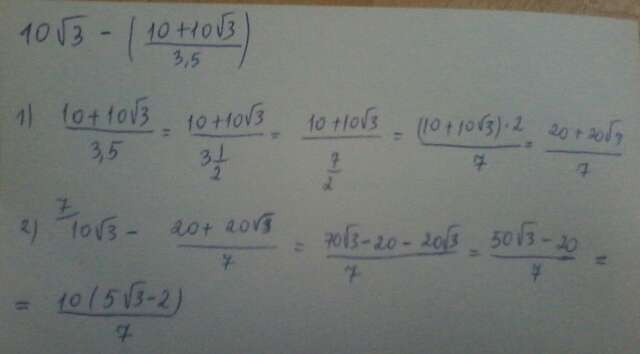 10√3 - ((10+10√3)/3,5)
1) (10+10√3)/3,5 = (10+10√3)/(3 1/2) = (10+10√3)/(7/2) = ((10+10√3)·2)/7 = (20+20√3)/7
2) 7/ 10√3 - (20+20√3)/7 = (70√3-20-20√3)/7 = (50√3-20)/7 =
= 10(5√3-2)/7